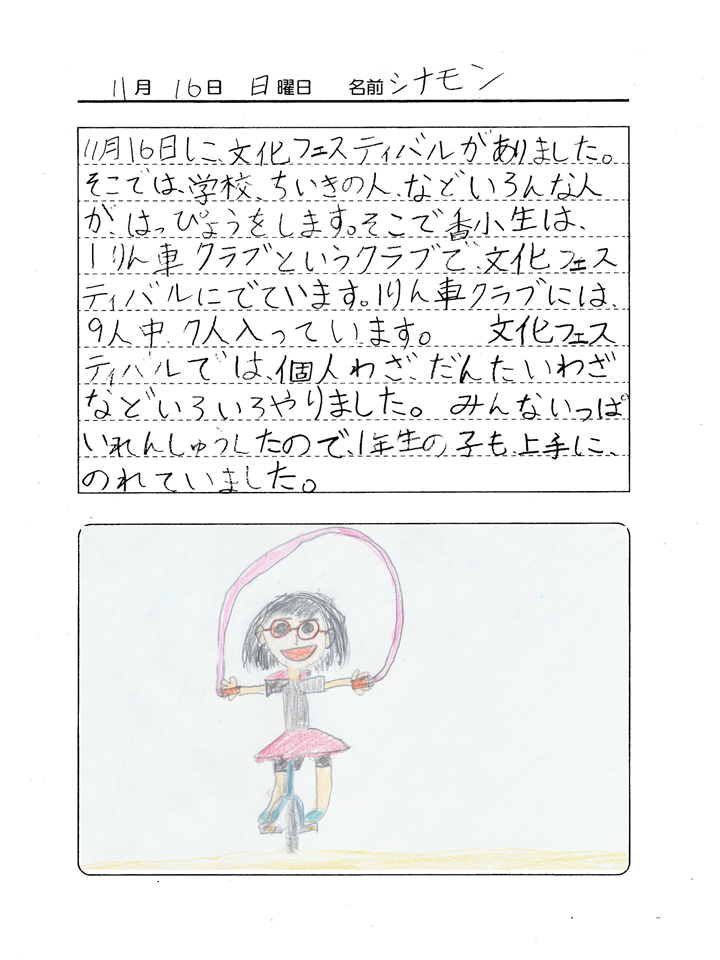 11月 16日 日曜日 名前 シナモン
11月16日に、文化フェスティバルがありました。
そこでは、学校、ちいきの人、などいろんな人
が、はっぴょうをします。そこで香小生は、
1りん車クラブというクラブで、文化フェス
ティバルにでています。1りん車クラブには、
9人中、7人入っています。 文化フェス
ティバルでは、個人わざ、だんたいわざ
などいろいろやりました。 みんないっぱ
いれんしゅうしたので、1年生の子も、上手に、
のれていました。